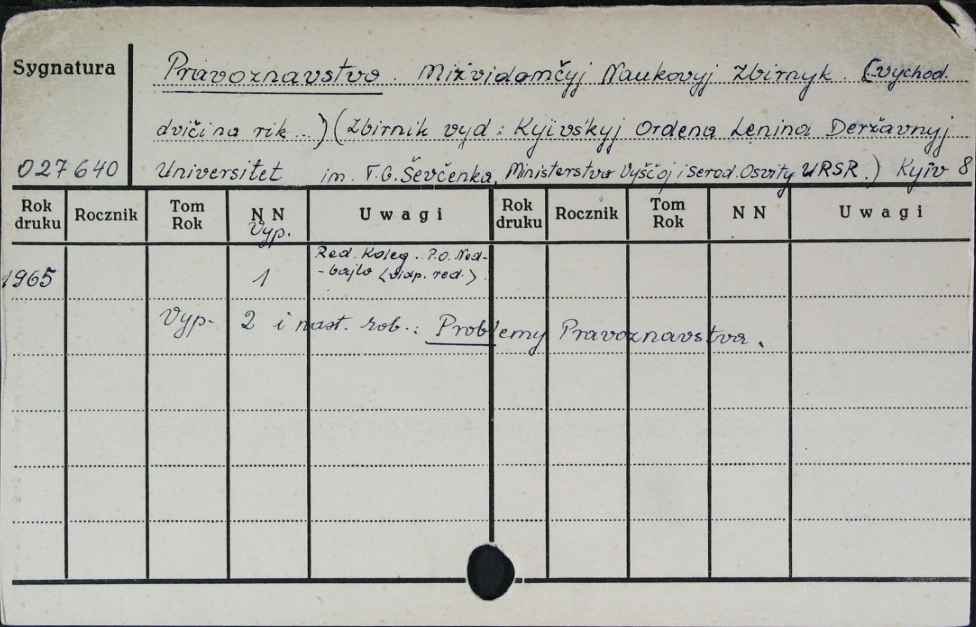 Sygnatura
Pravoznavstvo. Mižvidomčyj Naukovyj Zbirnyk. (Vychod.
dviči na rik...) (Zbirnik vyd: Kyivśkyj Ordena Lenina Deržavnyj
027640 Universitet im. T.G. Ševčenka, Ministerstvo Vyščoj i Serod. Osvity URSR.) Kyiv 8
Rok druku Rocznik Tom Rok NN Vyp. Uwagi Rok druku Rocznik Tom Rok NN Uwagi
1965 1 Red. Koleg. P.O. Ned-
-bajlo (vidp. red.)
Vyp. 2 i nast. zob.: Problemy Pravoznavstva.